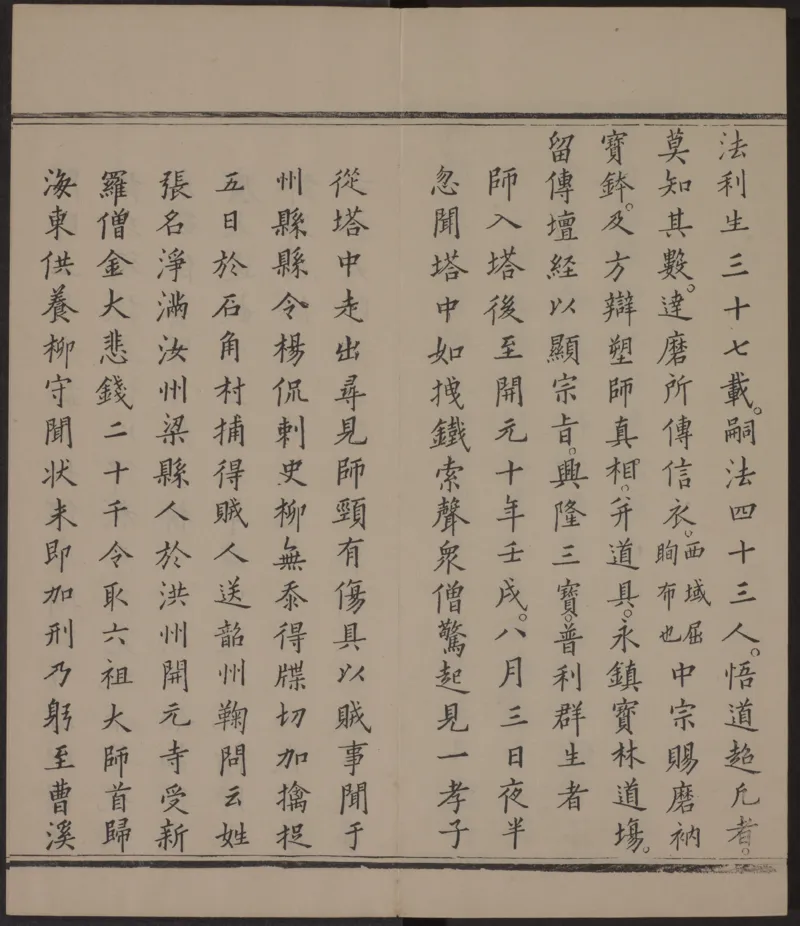 法利生三十七載。嗣法四十三人。悟道超凡者。
莫知其數。達磨所傳信衣。西域屈眴布也中宗賜磨衲
寶鉢。及方辯塑師真相。并道具。永鎮寶林道塲。
留傳壇經以顯宗旨。興隆三寶。普利群生者
師入塔後至開元十年壬戌。八月三日夜半
忽聞塔中如拽鐵索聲衆僧驚起見一孝子
從塔中走出尋見師頸有傷具以賊事聞于
州縣縣令楊侃刺史柳無忝得牒切加擒捉
五日於石角村捕得賊人送韶州鞠問云姓
張名淨滿汝州梁縣人於洪州開元寺受新
羅僧金大悲錢二十千令取六祖大師首歸
海東供養柳守聞狀未即加刑乃躬至曹溪